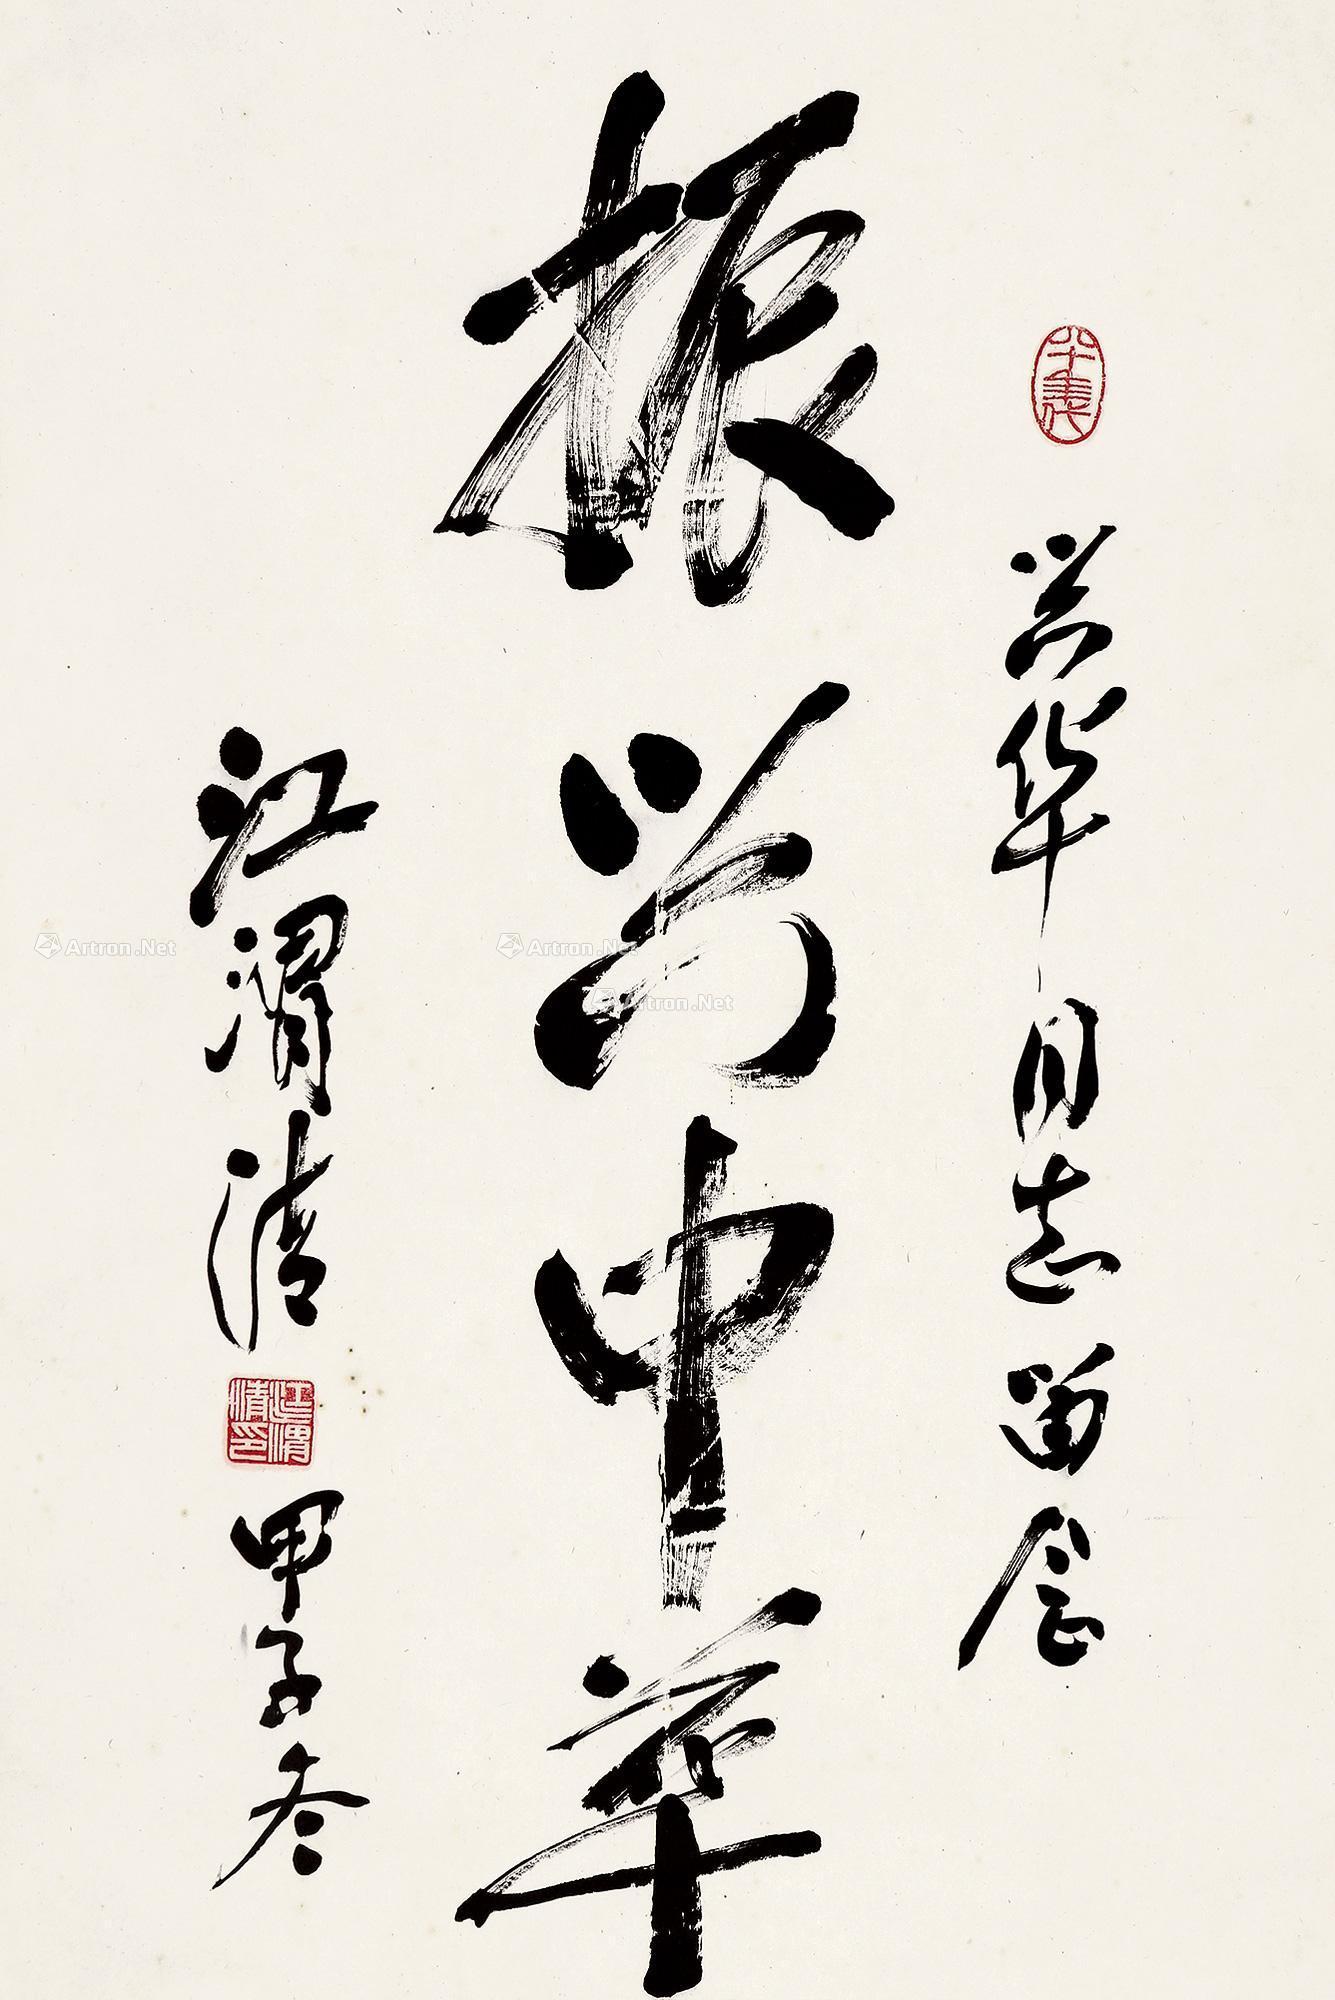 兴华同志留念
振兴中华
江渭清
江渭清印
甲子冬
Artron.Net
Artron.Net
Artron.Net